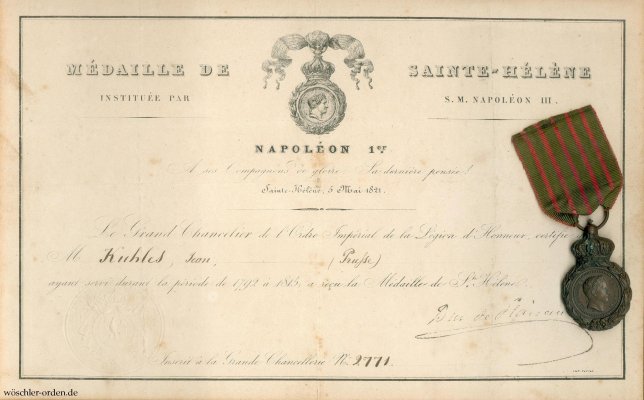 MÉDAILLE DE SAINTE-HÉLÈNE
INSTITUÉE PAR S. M. NAPOLÉON III.
NAPOLÉON 1er
A ses Compagnons de gloire, Sa dernière pensée!
Sainte-Hélène, 5 Mai 1821.
Le Grand Chancelier de l'Ordre Impérial de la Légion d'Honneur, certifie
M Kuhles, Jean, (Prusse)
ayant servi durant la période de 1792 à 1815, a reçu la Médaille de Ste Hélène.
Duc de
Inscrit à la Grande Chancellerie No 2771.
wöschler-orden.de